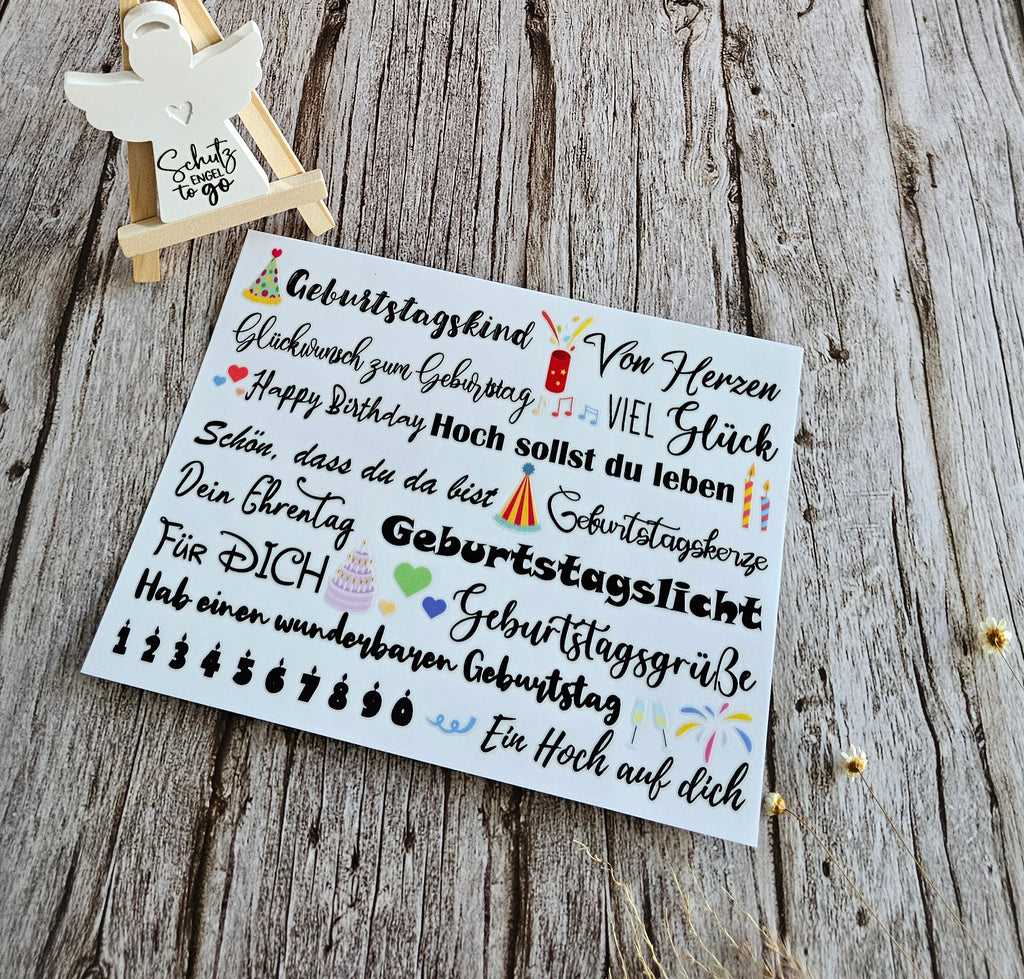 Schutz
ENGEL
to go
Geburtstagskind
Von Herzen
Glückwunsch zum Geburtstag
VIEL Glück
Happy Birthday
Hoch sollst du leben
Schön, dass du da bist
Geburtstagskerze
Dein Ehrentag
Geburtstagslicht
FÜR DICH
Geburtstagsgrüße
Hab einen wunderbaren Geburtstag
1 2 3 4 5 6 7 8 9 0
Ein Hoch auf dich